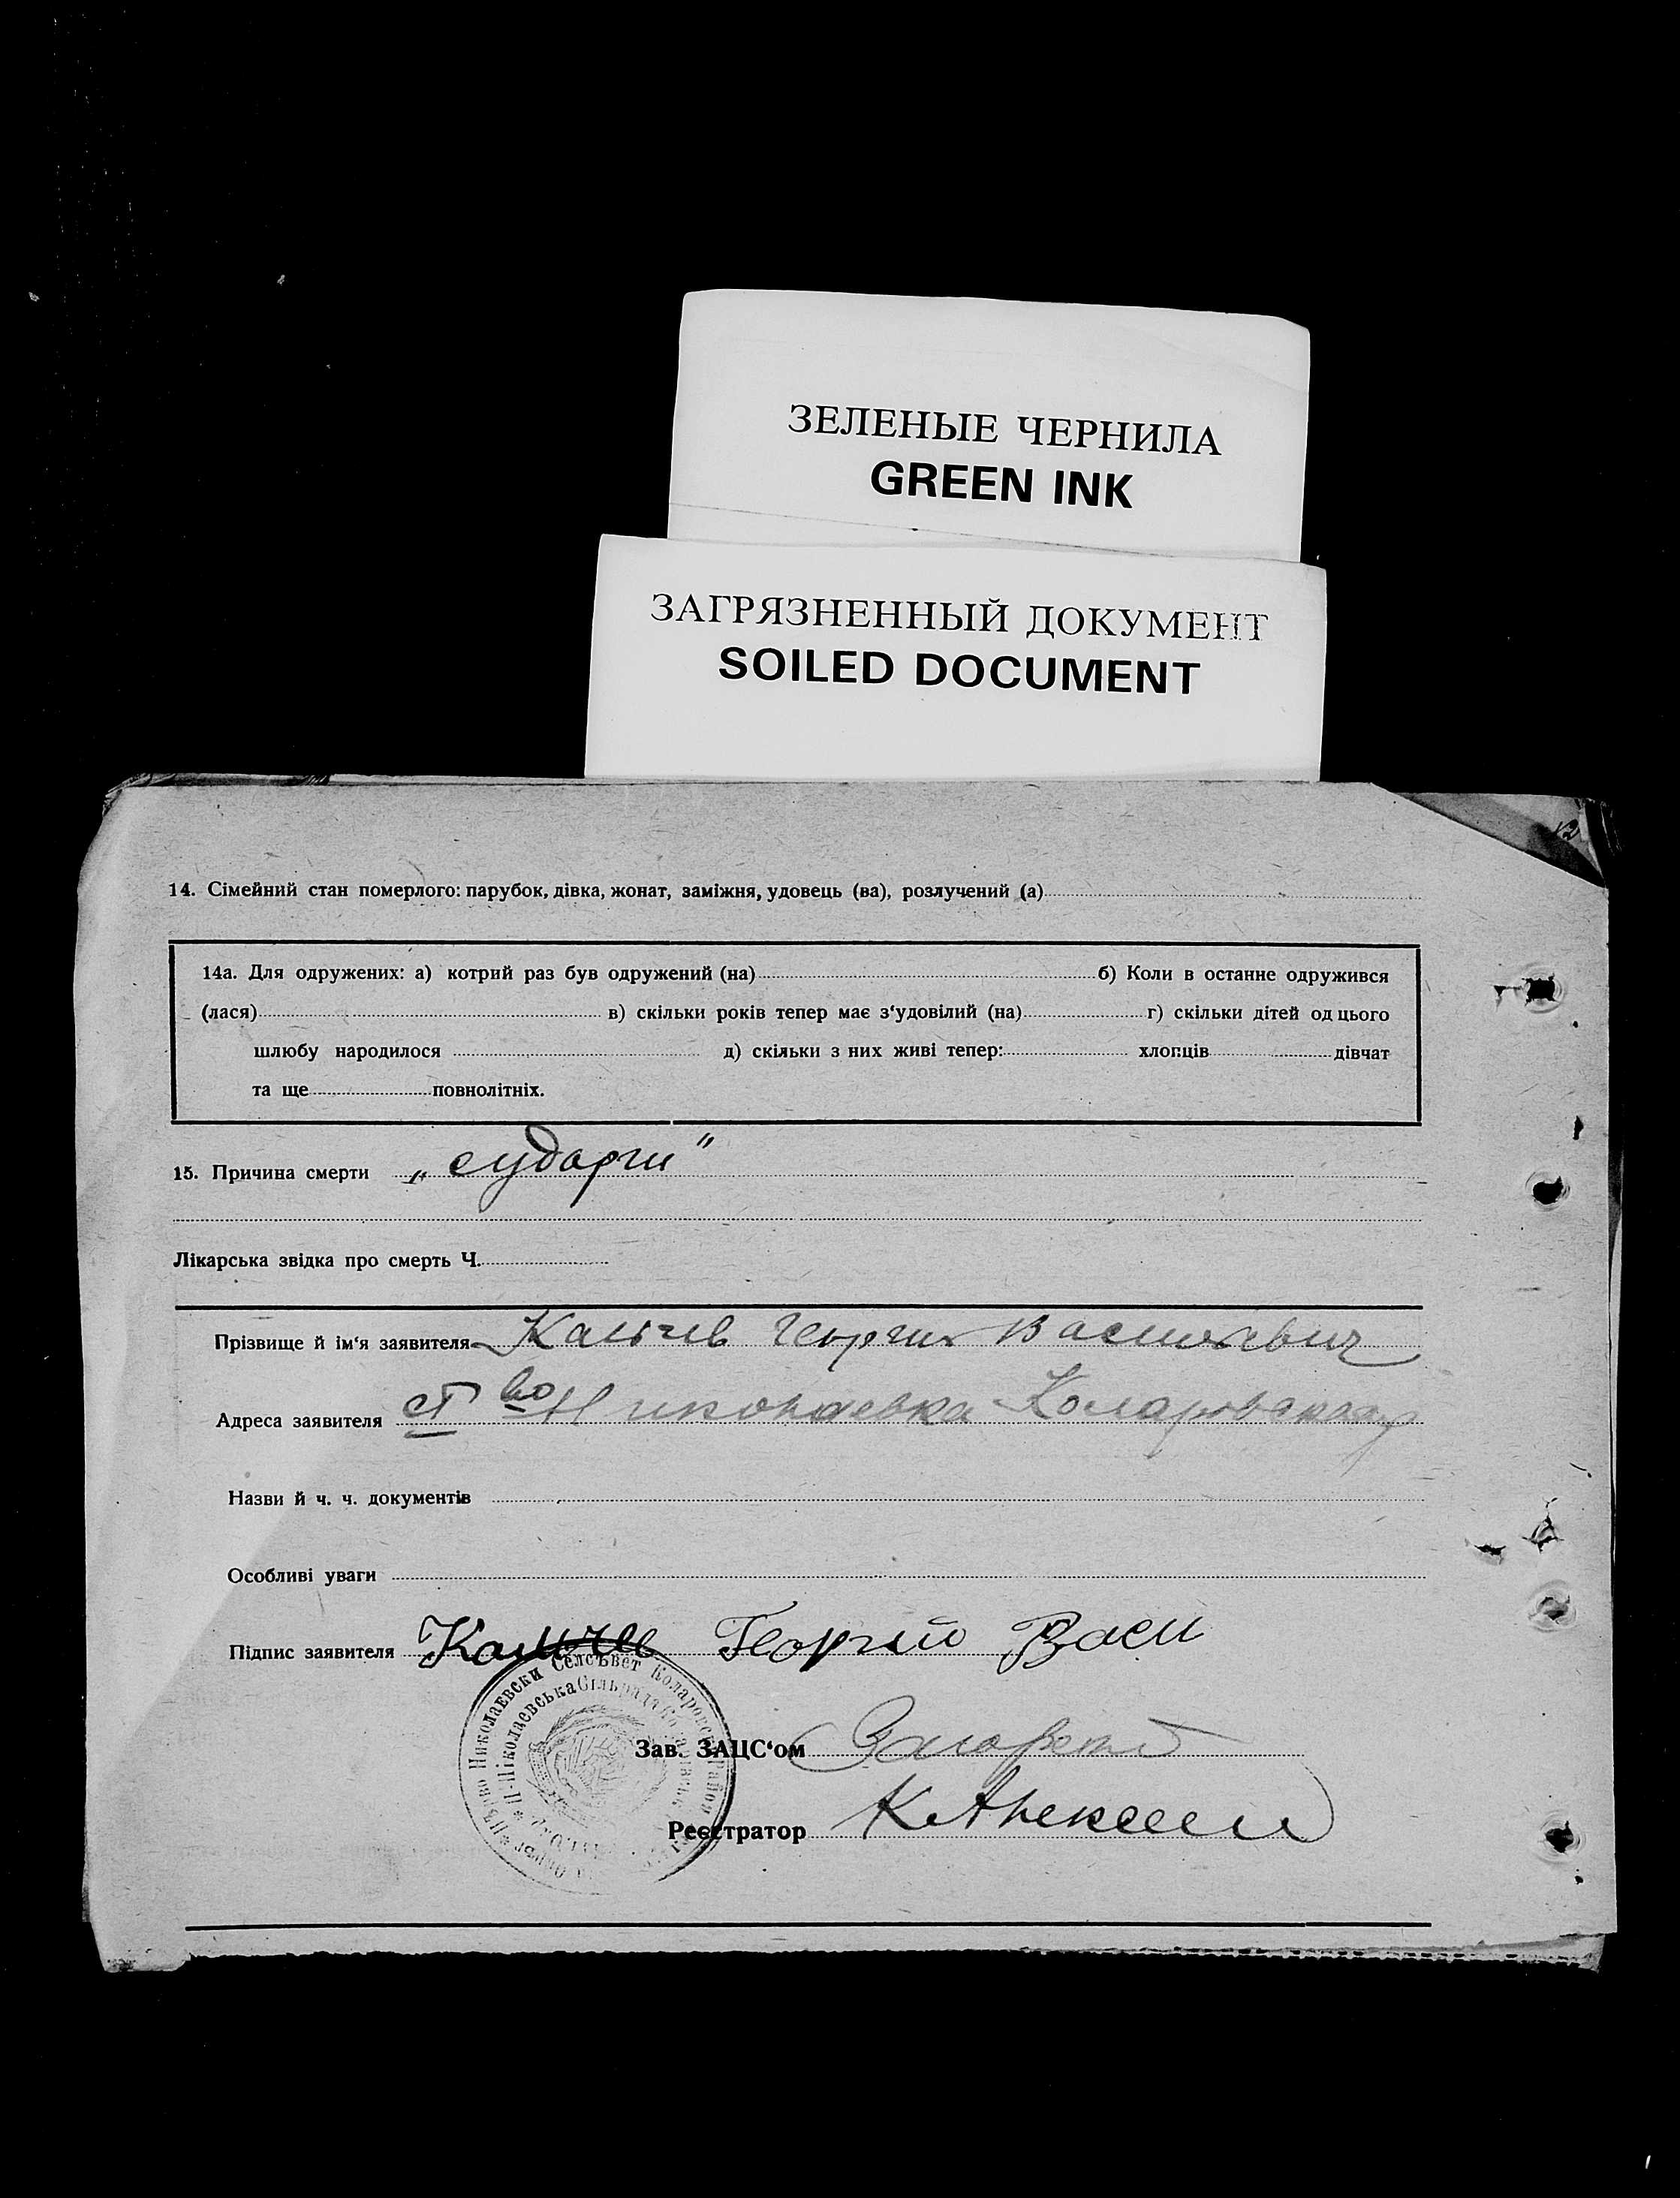 ЗЕЛЕНЫЕ ЧЕРНИЛА
GREEN INK
ЗАГРЯЗНЕННЫЙ ДОКУМЕНТ
SOILED DOCUMENT
14. Сімейний стан померлого: парубок, дівка, жонат, заміжня, удовець (ва), розлучений (а)
14а. Для одружених: а) котрий раз був одружений (на) б) Коли в останне одружився
(лася) в) скільки років тепер має з‘удовілий (на) г) скільки дітей од цього
шлюбу народилося д) скільки з них живі тепер: хлопців дівчат
та ще повнолітніх.
15. Причина смерти „судорги"
Лікарська звідка про смерть Ч.
Прізвище й ім‘я заявителя Калчев Георгия Василевич
Адреса заявителя Николаевка Коларовская
Назви й ч. ч. документів
Особливі уваги
Підпис заявителя Калчев Георгий Васи
Първо Николаевски Селсъвет Коларовски район
І-Ніколаевська Сільрада
Зав. ЗАЦС‘ом
Реєстратор К Алексеев